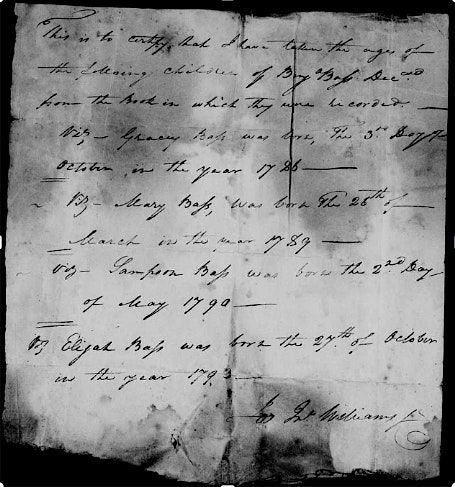 This is to certify that I have taken the ages of
the following children of Benja Bass Decead
from the Book in which they were recorded. —
Viz, — Gracey Bass was born, The 3rd Day of
October, in the year 1786 —
Viz — Mary Bass, was born The 26th of —
March in the year 1789 —
Viz — Sampson Bass was born the 2nd Day
of May 1790 —
Viz Elijah Bass was born the 27th of October
in the year 1793 —
Jno Williams